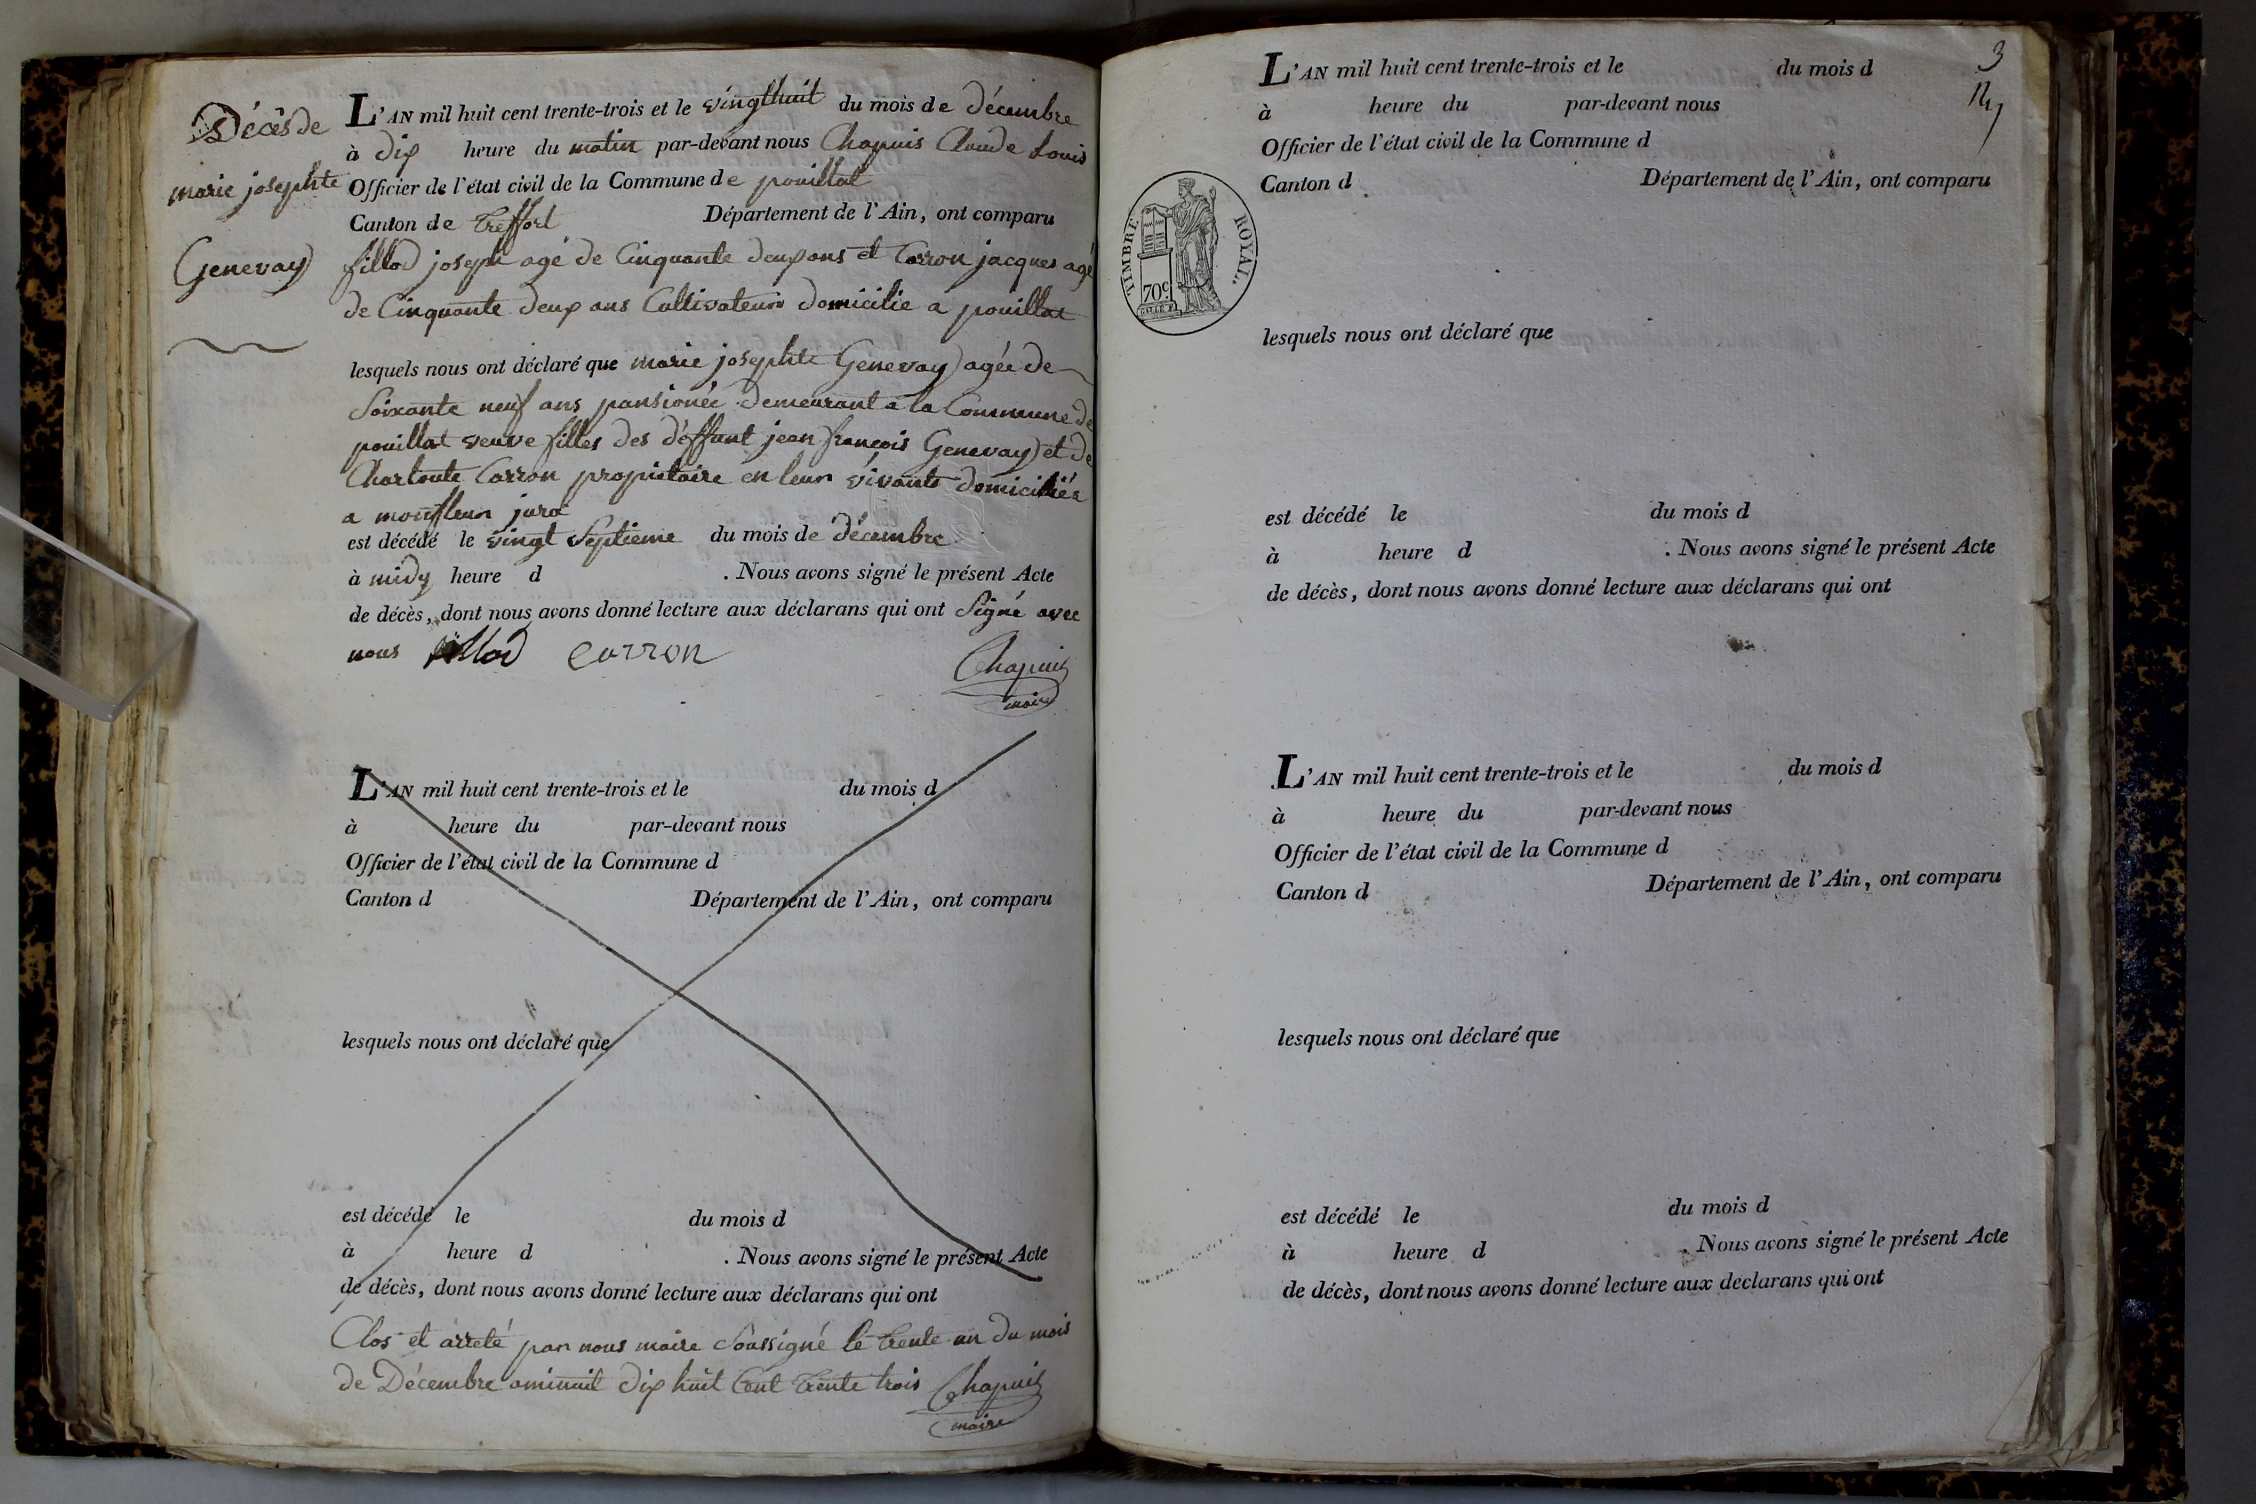 Décès de
marie josephte
Genevay
L'AN mil huit cent trente-trois et le vingthuit du mois de décembre
à dix heure du matin par-devant nous Chapuis Claude Louis
Officier de l'état civil de la Commune de pouillat
Canton de Treffort Département de l'Ain, ont comparu
fillod joseph agé de Cinquante deux ans et Carron jacques agé
de Cinquante deux ans Cultivateur domicilie a pouillat
lesquels nous ont déclaré que marie josephte Genevay agée de
Soixante neuf ans pansionée demeurant a la Commune de
pouillat veuve filles des déffunt jean françois Genevay et de
Charloute Carron propietaire en leur vivants domiciliés
a monfleur jura
est décédé le vingt Septieme du mois de décembre
à midy heure d . Nous avons signé le présent Acte
de décès, dont nous avons donné lecture aux déclarans qui ont Signé avec
nous fillod carron Chapuis
maire
L'AN mil huit cent trente-trois et le du mois d
à heure du par-devant nous
Officier de l'état civil de la Commune d
Canton d Département de l'Ain, ont comparu
lesquels nous ont déclaré que
est décédé le du mois d
à heure d . Nous avons signé le présent Acte
de décès, dont nous avons donné lecture aux déclarans qui ont
Clos et arreté par nous maire Soussigné le trente un du mois
de Décembre aminuit dix huit Cent Trente trois Chapuis
maire
3
L'AN mil huit cent trente-trois et le du mois d
à heure du par-devant nous
Officier de l'état civil de la Commune d
Canton d Département de l'Ain, ont comparu
TIMBRE ROYAL.
70c
lesquels nous ont déclaré que
est décédé le du mois d
à heure d . Nous avons signé le présent Acte
de décès, dont nous avons donné lecture aux déclarans qui ont
L'AN mil huit cent trente-trois et le du mois d
à heure du par-devant nous
Officier de l'état civil de la Commune d
Canton d Département de l'Ain, ont comparu
lesquels nous ont déclaré que
est décédé le du mois d
à heure d . Nous avons signé le présent Acte
de décès, dont nous avons donné lecture aux declarans qui ont